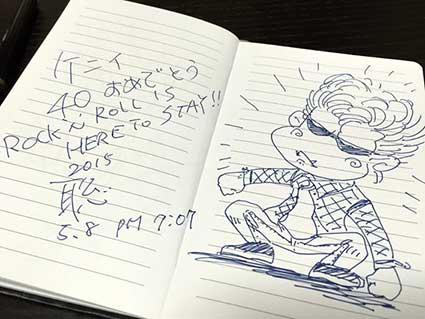 ケニイ
40 おめでとう
ROCK N' ROLL IS
HERE TO STAY!!
2015
5.8 PM 7:07